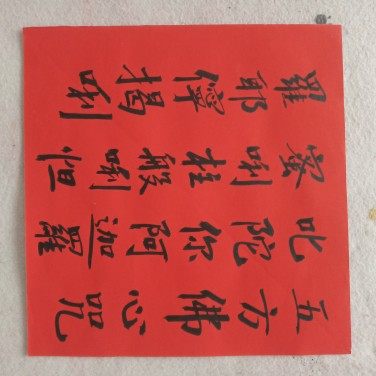 五方佛心咒
叱陀你阿迦羅
蜜唎柱般唎怛
羅耶儜揭唎